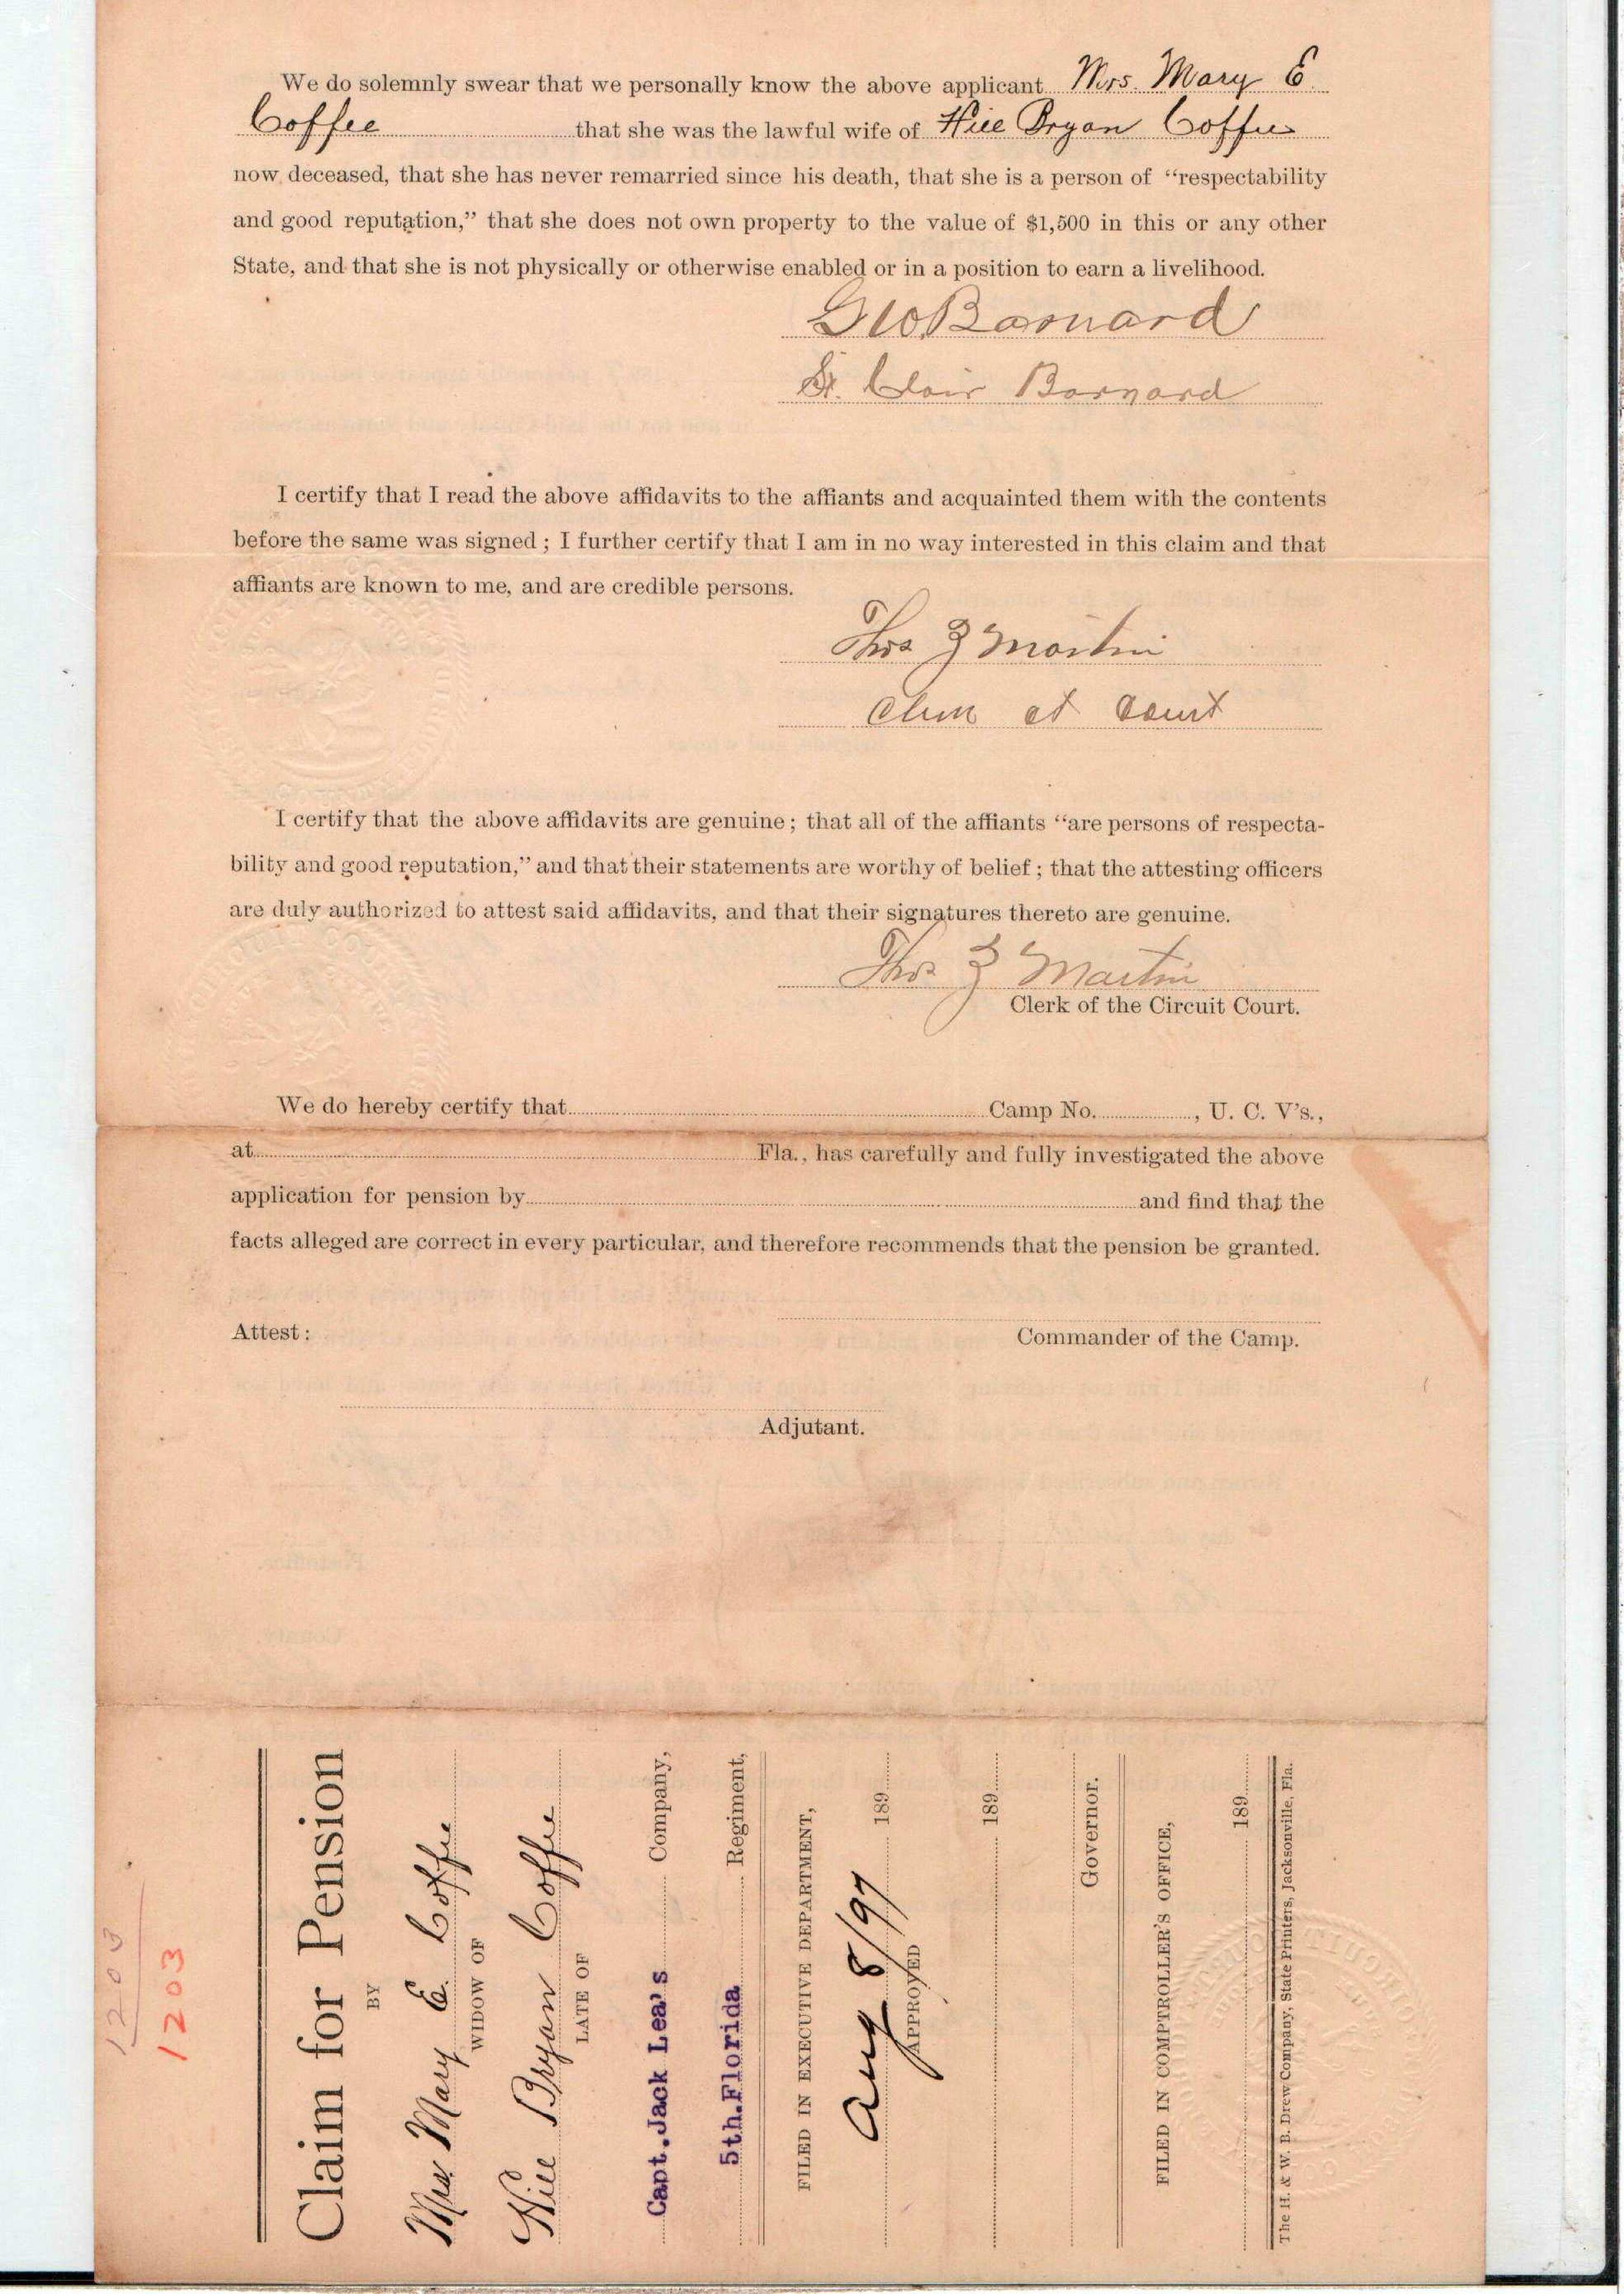 We do solemnly swear that we personally know the above applicant Mrs. Mary E
Coffee that she was the lawful wife of Hill Bryan Coffee
now deceased, that she has never remarried since his death, that she is a person of "respectability
and good reputation," that she does not own property to the value of $1,500 in this or any other
State, and that she is not physically or otherwise enabled or in a position to earn a livelihood.
Geo Barnard
St. Clair Barnard
I certify that I read the above affidavits to the affiants and acquainted them with the contents
before the same was signed; I further certify that I am in no way interested in this claim and that
affiants are known to me, and are credible persons.
Thos Z Martin
Clerk Ct Court
I certify that the above affidavits are genuine; that all of the affiants "are persons of respecta-
bility and good reputation," and that their statements are worthy of belief; that the attesting officers
are duly authorized to attest said affidavits, and that their signatures thereto are genuine.
Thos Z Martin
Clerk of the Circuit Court.
We do hereby certify that Camp No. , U. C. V's.,
at Fla., has carefully and fully investigated the above
application for pension by and find that the
facts alleged are correct in every particular, and therefore recommends that the pension be granted.
Attest:
Commander of the Camp.
Adjutant.
1203
1203
Claim for Pension
BY
Mrs. Mary E. Coffee
WIDOW OF
Hill Bryan Coffee
LATE OF
Capt. Jack Lea's Company,
5th. Florida Regiment,
FILED IN EXECUTIVE DEPARTMENT,
Aug 8/97 189
APPROVED
189
Governor.
FILED IN COMPTROLLER'S OFFICE,
189
The H. & W. B. Drew Company, State Printers, Jacksonville, Fla.